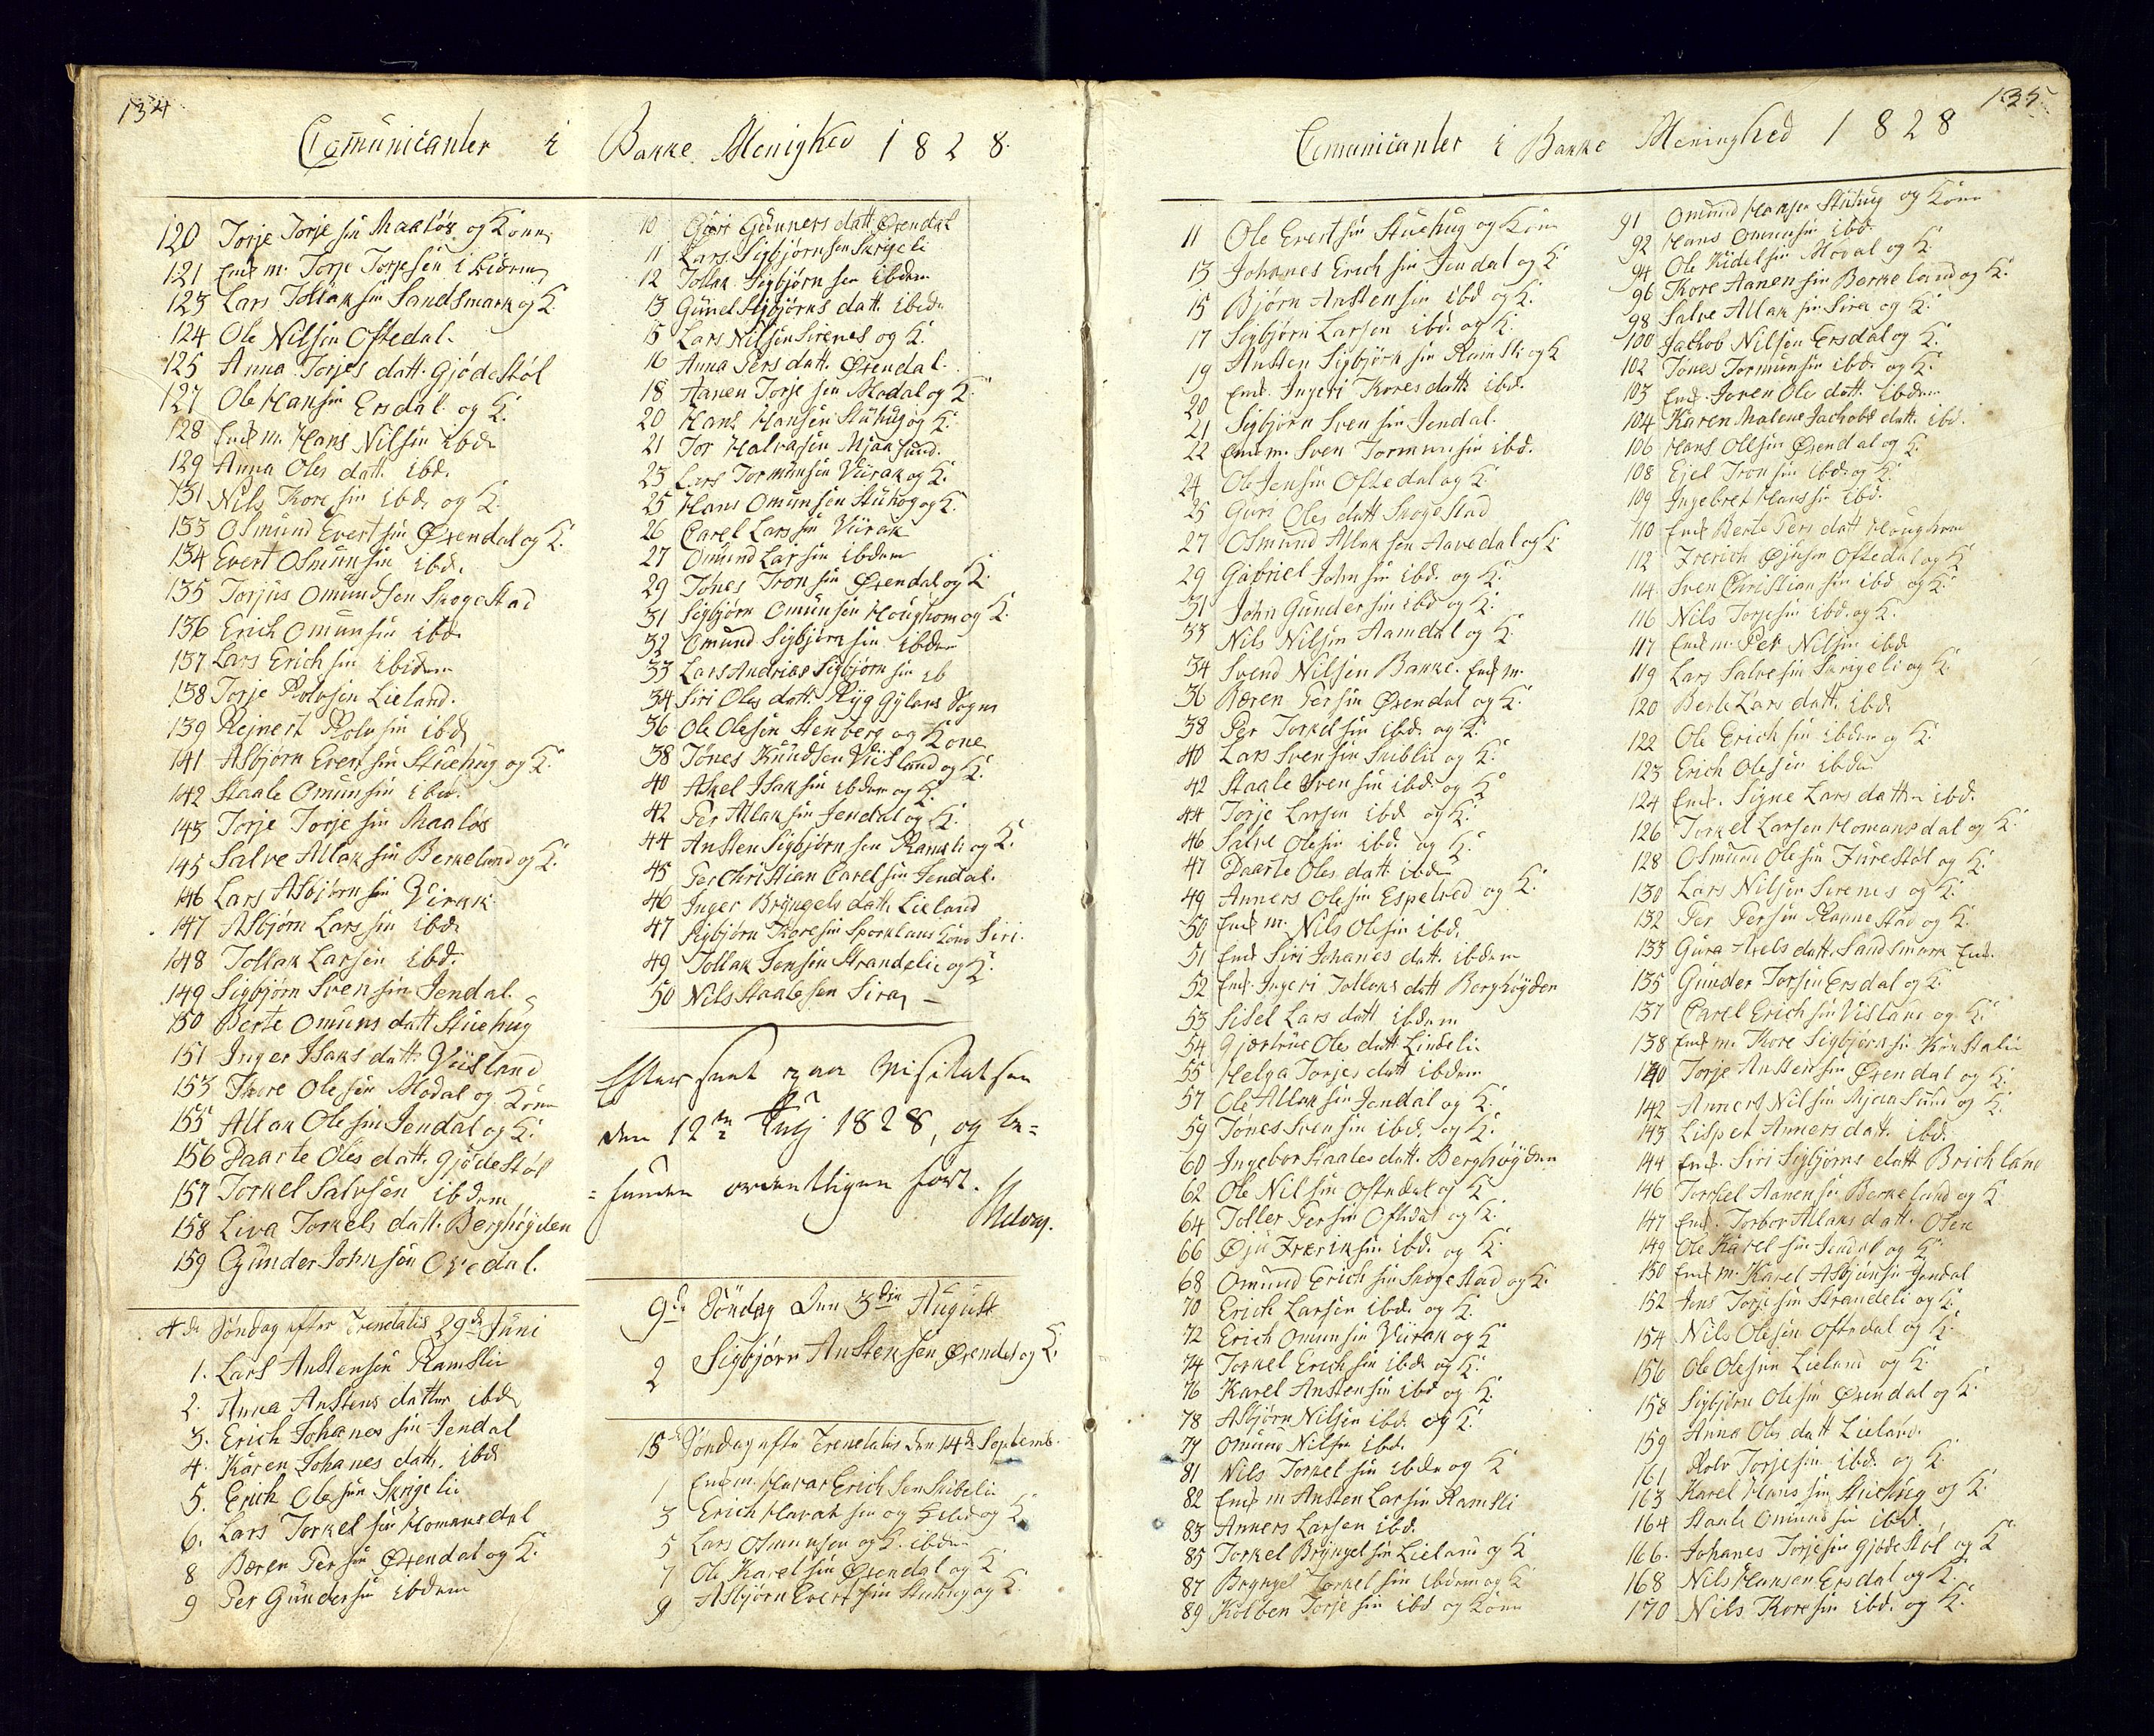 134
Comunicanter i Bakke Menighed 1828.
120 Torje Torje sen Maaløs og Kone
121 Enk m. Torje Torjesen i bidem
123 Lars Tollak sen Sandsmark og K.
124 Ole Nilsen Oftedal.
125 Anna Torjes datt. Gjødestøl
127 Ole Hansen Ersdal og K.
128 Enk m. Hans Nilsen ibd
129 Anna Oles datt. ibd.
131 Nils Thore sen ibd og K.
133 Osmund Evert sen Øxendal og K.
134 Evert Osmunsen ibd.
135 Torjus Omundsen Skogestad
136 Erich Omunsen ibd.
137 Lars Erich sen ibidem
138 Torje Rolvsen Lieland.
139 Rejnert Rolv sen ibd
141 Asbjørn Evert sen Stuehug og K.
142 Staale Omunsen ibd.
143 Torje Torje sen Maaløs
145 Salve Atlak sen Berkeland og K.
146 Lars Asbjørn sen Virak
147 Asbjørn Lars sen ibd
148 Tollak Larsen ibd.
149 Sigbjørn Sven sen Jendal.
150 Berte Omuns datt Stuehug
151 Inger Isaks datt Viisland
153 Thore Olesen Modal og Kone
155 Atlak Ole sen Jendal og K.
156 Daarte Oles datt. Gjødestøl
157 Torkel Salvsen ibdem
158 Liva Torkels datt. Berghøyden
159 Gunder Johnsen Ovedal.
4de Søndag efter Trenetatis 29de Juni
1. Lars Anstensen Ramslie
2. Anna Anstens datter ibd
3. Erich Johanes sen Jendal
4. Karen Johanes datt. ibd
5. Erich Ole sen Skrigelie
6. Lars Torkel sen Homansdal
8 Bæren Per sen Øxendal og K.
9 Per Gunder sen ibdem
10 Guri Gunners datt Øxendal
11 Lars Sigbjørnsen Skrigeli
12 Tollak Sigbjørn sen ibdem
13 Gunel Sigbjørns datt. ibid.
15 Lars Nilsen Sirenes og K.
16 Anna Pers datt. Øxendal.
18 Aanen Torje sen Modal og K.
20 Hans Hansen Stuhug og K.
21 Tor Halvasen Mjaasund.
23 Lars Tormunsen Viirak og K.
25 Hans Omunsen Stuhog og K.
26 Carel Lars sen Viirak
27 Omund Lar sen ibdem
29 Tønes Tron sen Øxendal og K.
31 Sigbjørn Omunsen Houghom og K.
32 Omund Sigbjørn sen ibdem
33 Lars Andrias Sigbjørn sen ib
34 Siri Oles datt. Ryg Gylans Sogn
36 Ole Olesen Stenberg og Kone
38 Tønes Knudsen Viisland og K.
40 Askel Isak sen ibdem og K.
42 Per Atlak sen Jendal og K.
44 Ansten Sigbjørn sen Ramsli og K.
45 Per Christian Carel sen Jendal.
46 Inger Bryngels datt. Lieland
47 Sigbjørn Thore sen Sporklans Kone Siri.
49 Tollak Jensen Strandelie og K.
50 Nils Staalesen Sira
Efterseet paa Visitatsen
den 12te July 1828, og be=
=funden ordentligen ført.
9de Søndag den 3die August
2 Sigbjørn Anstensen Øxendal og K.
15de Søndag efter Trenetatis den 14de Septemb.
1 Enk m. Havar Erich sen Skibeli
3 Erich Havar sen og ibd og K
5 Lars Osmunsen og K. ibdem
7 Ole Karel sen Øxendal og K
9 Asbjørn Evert sen Stuhug og K
135
Comunicanter i Bakke Meninghed 1828
11 Ole Evert sen Stuehug og Kone
13 Johanes Erich sen Jendal og K
15 Bjørn Ansten sen ibd og K.
17 Sigbjørn Larsen ibd. og K.
19 Ansten Sigbjørn sen Ramsli og K
20 Enk. Ingeri Thores datt ibd.
21 Sigbjørn Sven sen Jendal.
22 Enk m. Sven Tormun sen ibd.
24 Ole Jensen Oftedal og K.
25 Guri Oles datt Skogestad
27 Osmund Atlak sen Aavedal og K
29 Gabriel John sen ibd. og K.
31 John Gunder sen ibd og K.
33 Nils Nilsen Aamdal og K.
34 Svend Nilsen Bakke. Enk m.
36 Bæren Persen Øxendal og K.
38 Per Torkel sen ibd. og K.
40 Lars Svensen Skiblie og K.
42 Staale Svensen ibd. og K
44 Torje Larsen ibd og K.
46 Salve Olesen ibd. og K.
47 Daarte Oles datt ibdem
49 Anners Olesen Espetved og K.
50 Enk m. Nils Olesen ibd.
51 Enk Siri Johanes datt. ibdem
52 Enk. Ingeri Tollaks datt Berghøyden
53 Sisel Lars datt ibdem
54 Gjærtrue Oles datt Lindeli
55 Helga Torjes datt ibdem
57 Ole Atlak sen Jendal og K.
59 Tønes Svensen ibd. og K.
60 Ingebor Staales datt. Berghøyden
62 Ole Nilsen Oftedal og K
64 Toller Persen Oftedal og K.
66 Øju Frerik sen ibd. og K.
68 Omund Erich sen Skogestad og K.
70 Erich Larsen ibd. og K.
72 Erich Omunsen Viirak og K
74 Torkel Erich sen ibd. og K.
76 Karel Ansten sen ibd og K.
78 Asbjørn Nilsen ibd. og K.
79 Omund Nilsen ibd.
81 Nils Torkel sen ibdem og K
82 Enk m Ansten Larsen Ramsli
83 Anners Larsen ibd.
85 Torkel Bryngel sen Lieland og K
87 Bryngel Torkel sen ibdem og K
89 Kolben Torje sen ibd og Kone
91 Omund Hansen Stuhug og Kone
92 Hans Omunsen ibd.
94 Ole Kidel sen Modal og K.
96 Thore Aanensen Berkeland og K.
98 Salve Atlak sen Sira og K.
100 Jackob Nilsen Ersdal og K.
102 Tønes Tormunsen ibd. og K.
103 Enk. Joren Oles datt. ibdem
104 Karen Malene Jackobs datt. ibd.
106 Hans Olesen Øxendal og K.
108 Ejel Tronsen ibd. og K.
109 Ingebret Hanssen ibd.
110 Enk Berte Pers datt Houghom
112 Frerich Øjusen Oftedal og K
114 Sven Christian sen ibd og K.
116 Nils Torjesen ibd. og K.
117 Enk m. Per Nilsen ibd
119 Lars Salvesen Skrigeli og K.
120 Berte Lars datt. ibd.
122 Ole Erich sen ibdem og K.
123 Erich Olesen ibdem
124 Enk. Signe Lars datter ibd.
126 Torkel Larsen Homansdal og K.
128 Osmund Olesen Furestøl og K.
130 Lars Nilsen Sirenes og K.
132 Per Persen Rannestad og K.
133 Gura Axels datt. Sandsmark Enk.
135 Gunder Torsen Ersdal og K.
137 Carel Erich sen Visland og K.
138 Enk m. Thore Sigbjørn sen
140 Torje Anstensen Øxendal og K.
142 Anners Nilsen Mjaasund og K.
143 Lispet Anners datt. ibd.
144 Enk. Siri Sigbjørns datt Brichland
146 Torkel Aanensen Berkeland og K
147 Enk. Torbor Atlaks datt. Osen
149 Ole Karel sen Jendal og K.
150 Enk m. Karel Asbjønsen Jendal
152 Jens Torjesen Strandeli og K.
154 Nils Olesen Oftedal og K.
156 Ole Olesen Lieland og K.
158 Sigbjørn Olesen Øxendal og K.
159 Anna Oles datt Lieland.
161 Rolv Torjesen ibd. og K.
163 Karel Hans sen Stuehug og K.
164 Staale Omundsen ibd.
166. Johanes Torjesen Gjødestøl og K
168 Nils Hansen Ersdal og K.
170 Nils Thoresen ibd. og K.